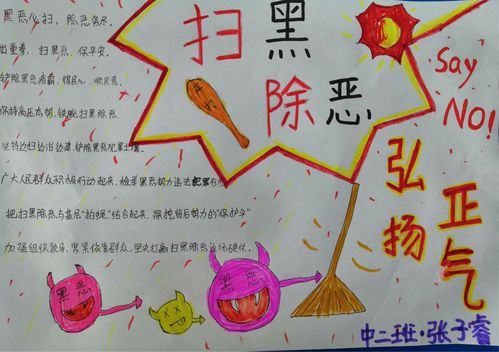 黑恶必扫，除恶务尽。
出重拳、扫黑恶、保平安。
铲除黑恶
保持高压态势，铁腕扫黑除恶
坚持边扫边治边建，铲除黑恶犯罪土壤。
广大人民群众积极行动起来，检举黑恶势力违法犯罪
把扫黑除恶与基层"拍蝇"结合起来，深挖背后势力的"保护伞"
加强组织领导，紧紧依靠群众，坚决打赢扫黑除恶这场硬仗。
扫黑
除恶
Say
NO!
弘扬
正气
黑恶
黑恶
中二班·张子睿